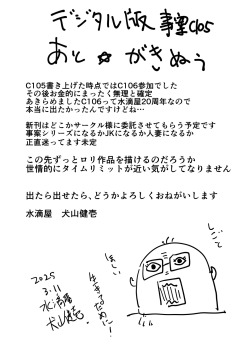 デジタル版 事案C105
あと☆がきぬぅ
C105書き上げた時点ではC106参加でした
その後お金的にまったく無理と確定
あきらめましたC106って水滴屋20周年なので
本当に出たかったんですけどね…
新刊はどこかサークル様に委託させてもらう予定です
事案シリーズになるかJKになるか人妻になるか
正直迷ってます未定
この先ずっとロリ作品を描けるのだろうか
世情的にタイムリミットが近い気がしてなりません
出たら出せたら、どうかよろしくおねがいします
水滴屋 犬山健壱
しごと
生きるために!
2025
3.11
水滴屋
犬山健壱